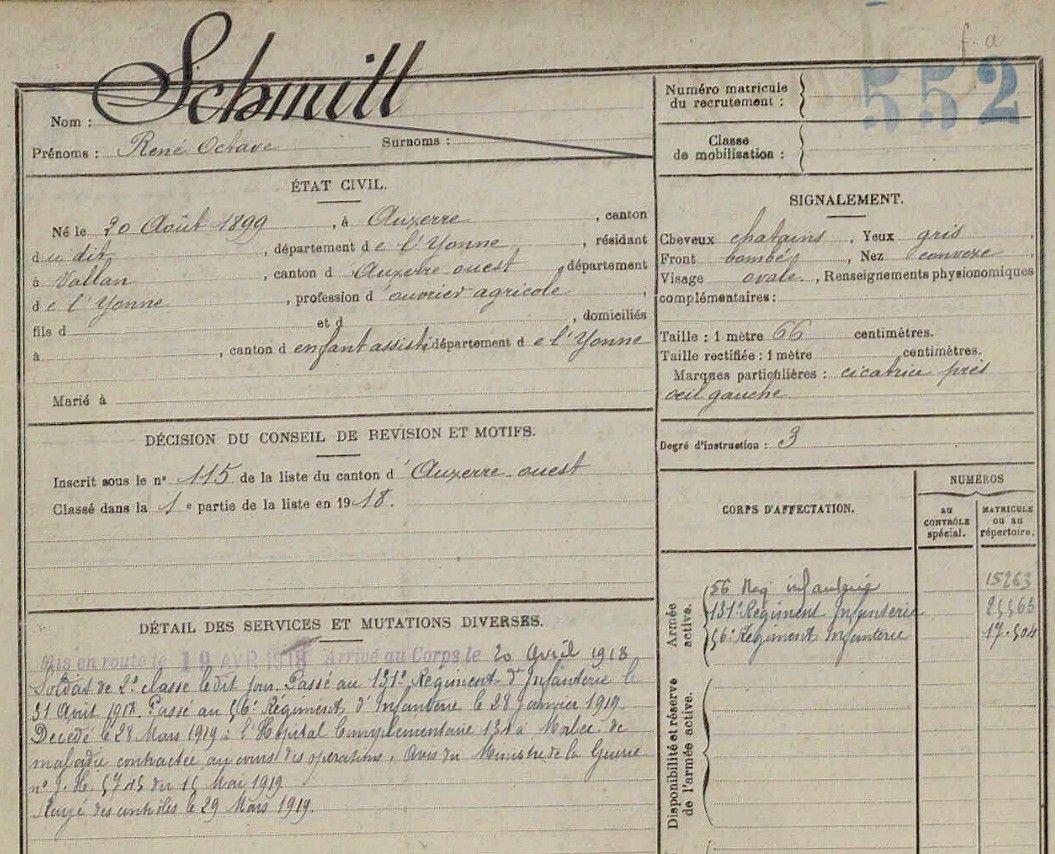 f. a
Nom : Schmitt
Prénoms : René Octave Surnoms :
Numéro matricule
du recrutement :
552
Classe
de mobilisation :
ÉTAT CIVIL.
Né le 20 Août 1899, à Auxerre, canton
du dit, département de l'Yonne, résidant
à Vallan, canton d'Auxerre ouest, département
de l'Yonne, profession d'ouvrier agricole,
fils d et d, domiciliés
à, canton d enfant assisté département de l'Yonne
Marié à
SIGNALEMENT.
Cheveux chatains, Yeux gris,
Front bombé, Nez convexe,
Visage ovale, Renseignements physionomiques
complémentaires :
Taille : 1 mètre 66 centimètres.
Taille rectifiée : 1 mètre centimètres.
Marques particulières : cicatrice près
oeil gauche
Degré d'instruction : 3
DÉCISION DU CONSEIL DE REVISION ET MOTIFS.
Inscrit sous le n° 115 de la liste du canton d'Auxerre ouest
Classé dans la 1e partie de la liste en 1918.
CORPS D'AFFECTATION.
NUMÉROS
au
CONTRÔLE
spécial.
MATRICULE
ou au
répertoire.
Armée
active.
56 Reg infanterie 15263
131e Régiment Infanterie
56e Régiment Infanterie 17.504
Disponibilité et réserve
de l'armée active.
DÉTAIL DES SERVICES ET MUTATIONS DIVERSES.
Mis en route le 19 AVR 1918 Arrivé au Corps le 20 Avril 1918
Soldat de 2e classe le dit jour. Passé au 131e Régiment d'Infanterie le
31 Août 1918. Passé au 56e Régiment d'Infanterie le 28 Janvier 1919.
Décédé le 28 Mars 1919 à l'Hôpital Complémentaire à de
maladie contractée au cours des opérations. Avis du Ministre de la Guerre
n° du 15 Mai 1919
Rayé des contrôles le 29 Mars 1919.